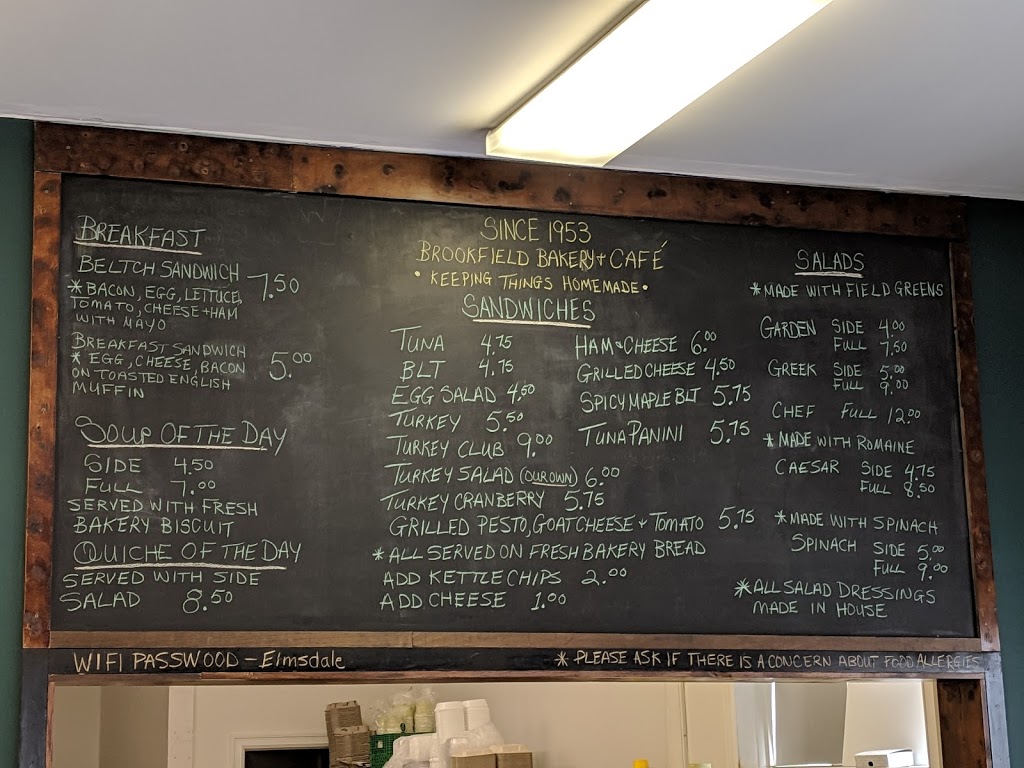 BREAKFAST
BELTCH SANDWICH 7.50
*BACON, EGG, LETTUCE,
TOMATO, CHEESE + HAM
WITH MAYO
BREAKFAST SANDWICH
* EGG, CHEESE, BACON 5.00
ON TOASTED ENGLISH
MUFFIN
SOUP OF THE DAY
SIDE 4.50
FULL 7.00
SERVED WITH FRESH
BAKERY BISCUIT
QUICHE OF THE DAY
SERVED WITH SIDE
SALAD 8.50
SINCE 1953
BROOKFIELD BAKERY + CAFÉ
• KEEPING THINGS HOMEMADE •
SANDWICHES
TUNA 4.75
BLT 4.75
EGG SALAD 4.50
TURKEY 5.50
TURKEY CLUB 9.00
TURKEY SALAD (OUR OWN) 6.00
TURKEY CRANBERRY 5.75
GRILLED PESTO, GOAT CHEESE + TOMATO 5.75
*ALL SERVED ON FRESH BAKERY BREAD
ADD KETTLE CHIPS 2.00
ADD CHEESE 1.00
HAM + CHEESE 6.00
GRILLED CHEESE 4.50
SPICY MAPLE BLT 5.75
TUNA PANINI 5.75
SALADS
*MADE WITH FIELD GREENS
GARDEN SIDE 4.00
FULL 7.50
GREEK SIDE 5.00
FULL 9.00
CHEF FULL 12.00
*MADE WITH ROMAINE
CAESAR SIDE 4.75
FULL 8.50
*MADE WITH SPINACH
SPINACH SIDE 5.00
FULL 9.00
*ALL SALAD DRESSINGS
MADE IN HOUSE
WIFI PASSWOOD - Elmsdale
* PLEASE ASK IF THERE IS A CONCERN ABOUT FOOD ALLERGIES